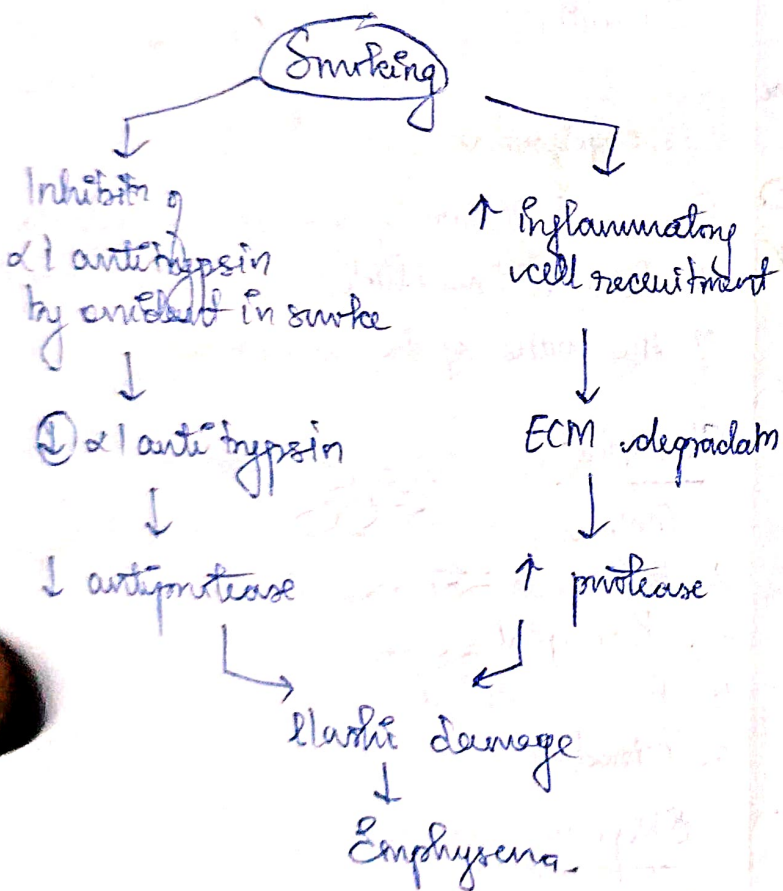 Smoking
Inhibitn of
α1 antitrypsin
by oxidant in smoke
↓
↓ α1 antitrypsin
↓
↓ antiprotease
↑ inflammatory
cell recruitment
↓
ECM degradatn
↓
↑ protease
Elastic damage
↓
Emphysema.